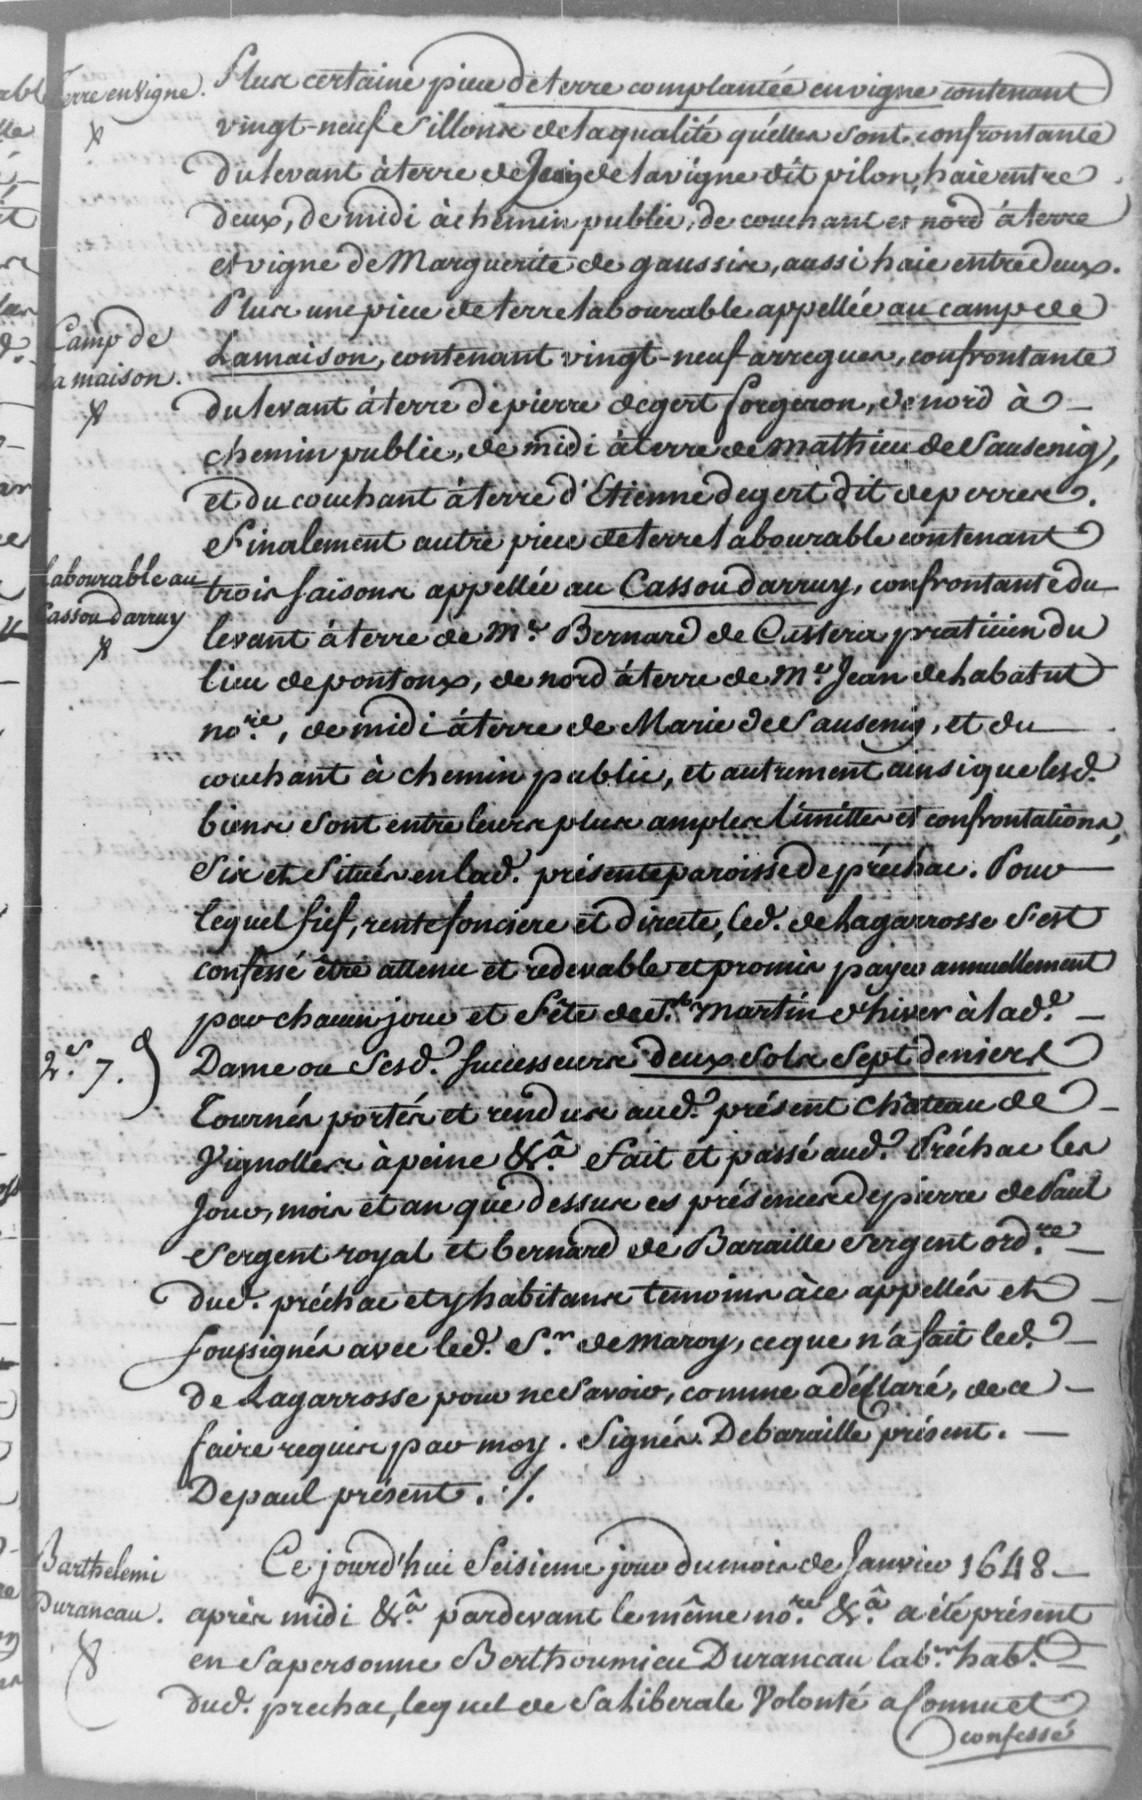 Terre en Vigne.
Plus certaine piece de terre complantée en vigne contenant
vingt-neuf Sillons de la qualité qu'elles sont, confrontante
du levant à terre de Jean de Lavigne dit pilon, haie entre
deux, de midi à chémin public, de couchant et nord à terre
et vigne de Marguerite de gaussin, aussi haie entre deux.
Camp de
La maison.
Plus une piece de terre labourable appellée au camp de
Lamaison, contenant vingt-neuf arregues, confrontante
du levant à terre de pierre degert forgeron, de nord à
chemin public, de midi à terre de Mathieu de Sausenig,
et du couchant à terre d'Etienne degert dit de perres.
Labourable au
Cassou darruy
Finalement autre piece de terre labourable contenant
trois faisons appellée au Cassou darruy, confrontante du
levant à terre de Me. Bernard de Custera praticien du
lieu de pontoux, de nord à terre de Me. Jean de Labatut
nore., de midi à terre de Marie de Sausenig, et du
couchant à chemin public, et autrement ainsi que lesd.
biens sont entre leurs plus amples limittes et confrontations,
Sis et Situés en lad. présente paroisse de préchac. Pour
lequel fief, rente fonciere et directe, led. de Lagarrosse s'est
confessé être attenu et redevable et promis payer annuellement
par chacun jour et Fête de St. Martin d'hiver à lade.
2s. 7d.
Dame ou Sesd. Successeurs deux Sols Sept deniers
Tournés portés et rendus aud. présent Château de
Vignolles à peine &a. Fait et passé aud. Préchac les
Jour, mois et an que dessus es présences de pierre de Paul
Sergent royal et bernard de Baraille Sergent ordre.
dud. préchac et y habitans temoins à ce appellés et
soussignés avec led. Sr. de Maroy, ce que n'a fait led.
de Lagarrosse pour ne Savoir, comme a déclaré, de ce
faire requis par moy. Signés. Debaraille présent.
Depaul présent. ./.
Barthelemi
Durancau.
Ce jourd'hui Seisieme jour du mois de Janvier 1648
après midi &a. pardevant le même nore. &a. a été présent
en Sa personne Berthoumieu Durancau labr. habt.
dud. prechac, lequel de Sa Liberale Volonté a Connu et
confessé